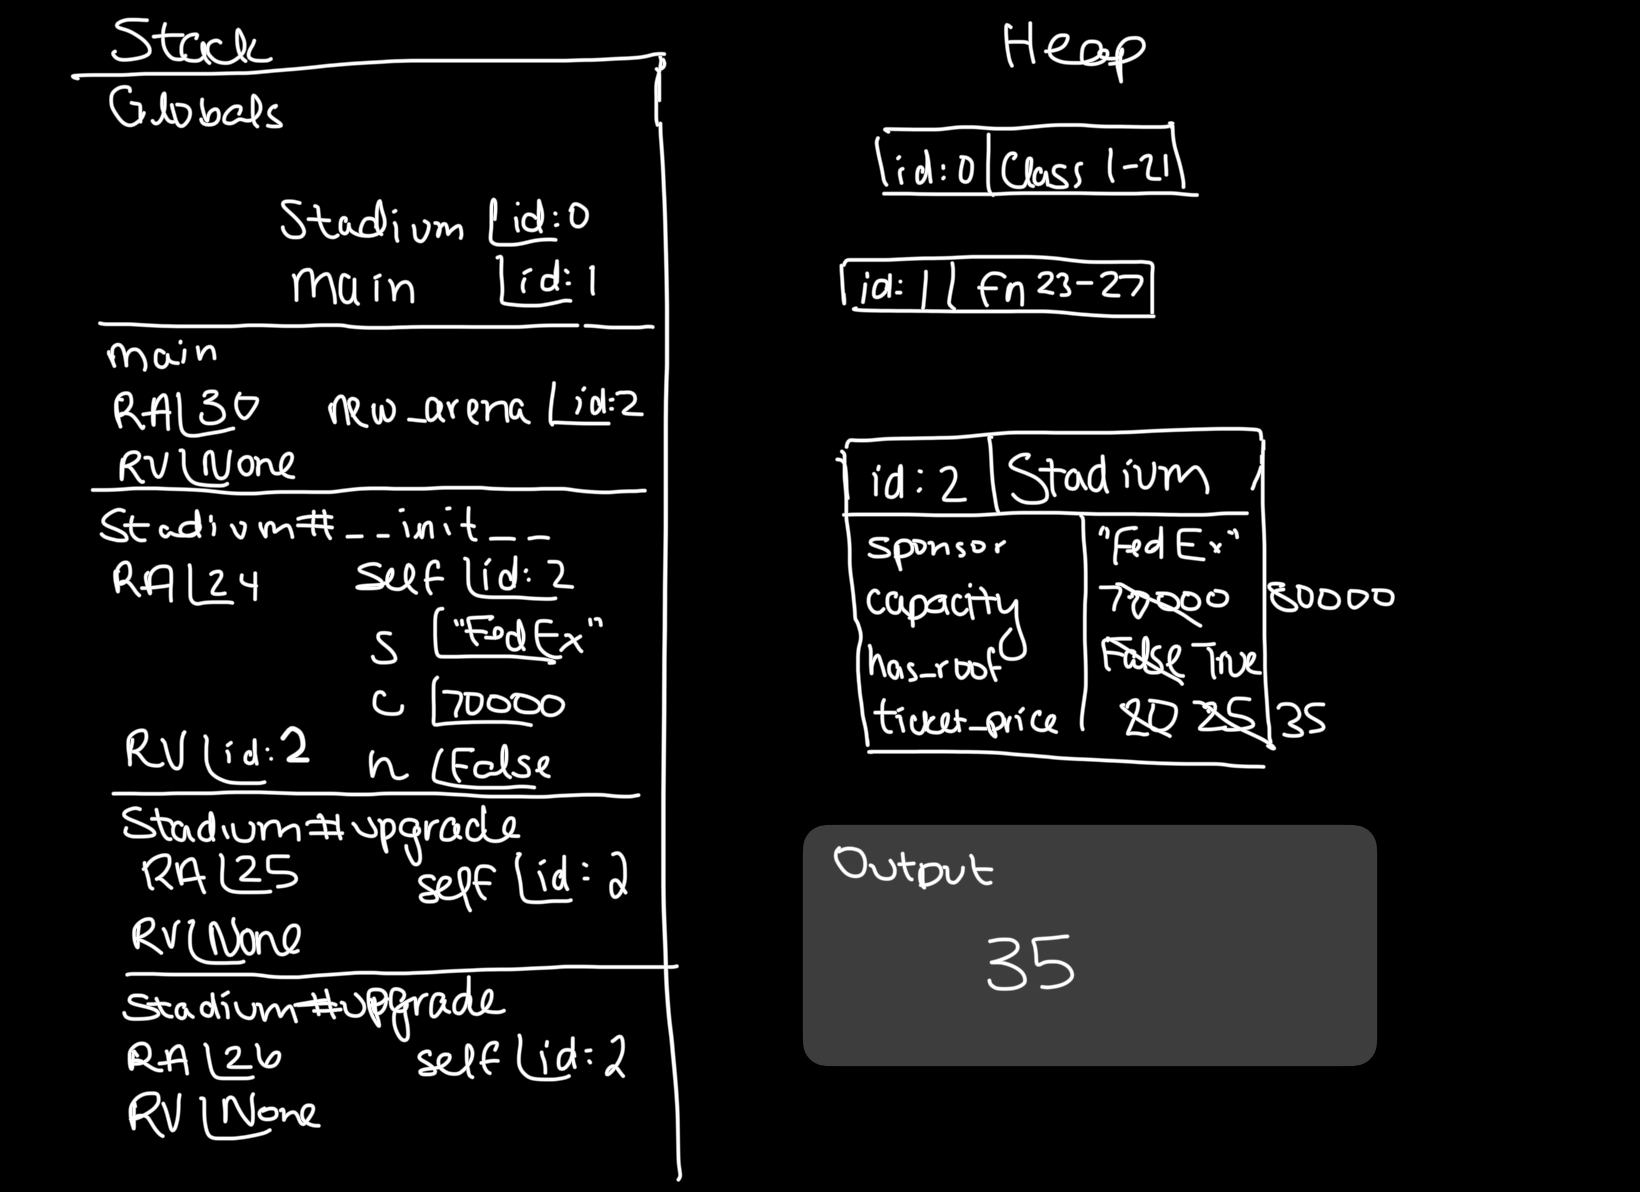 Stack
Globals
Stadium id:0
main id:1
main
RA 30 new_arena id:2
RV None
Stadium#__init__
RA 24 self id:2
s "FedEx"
c 70000
RV id:2 h False
Stadium#upgrade
RA 25 self id:2
RV None
Stadium#upgrade
RA 26 self id:2
RV None
Heap
id:0 Class 1-21
id:1 fn 23-27
id:2 Stadium
sponsor "FedEx"
capacity 70000 80000
has_roof False True
ticket_price 20 25 35
Output
35